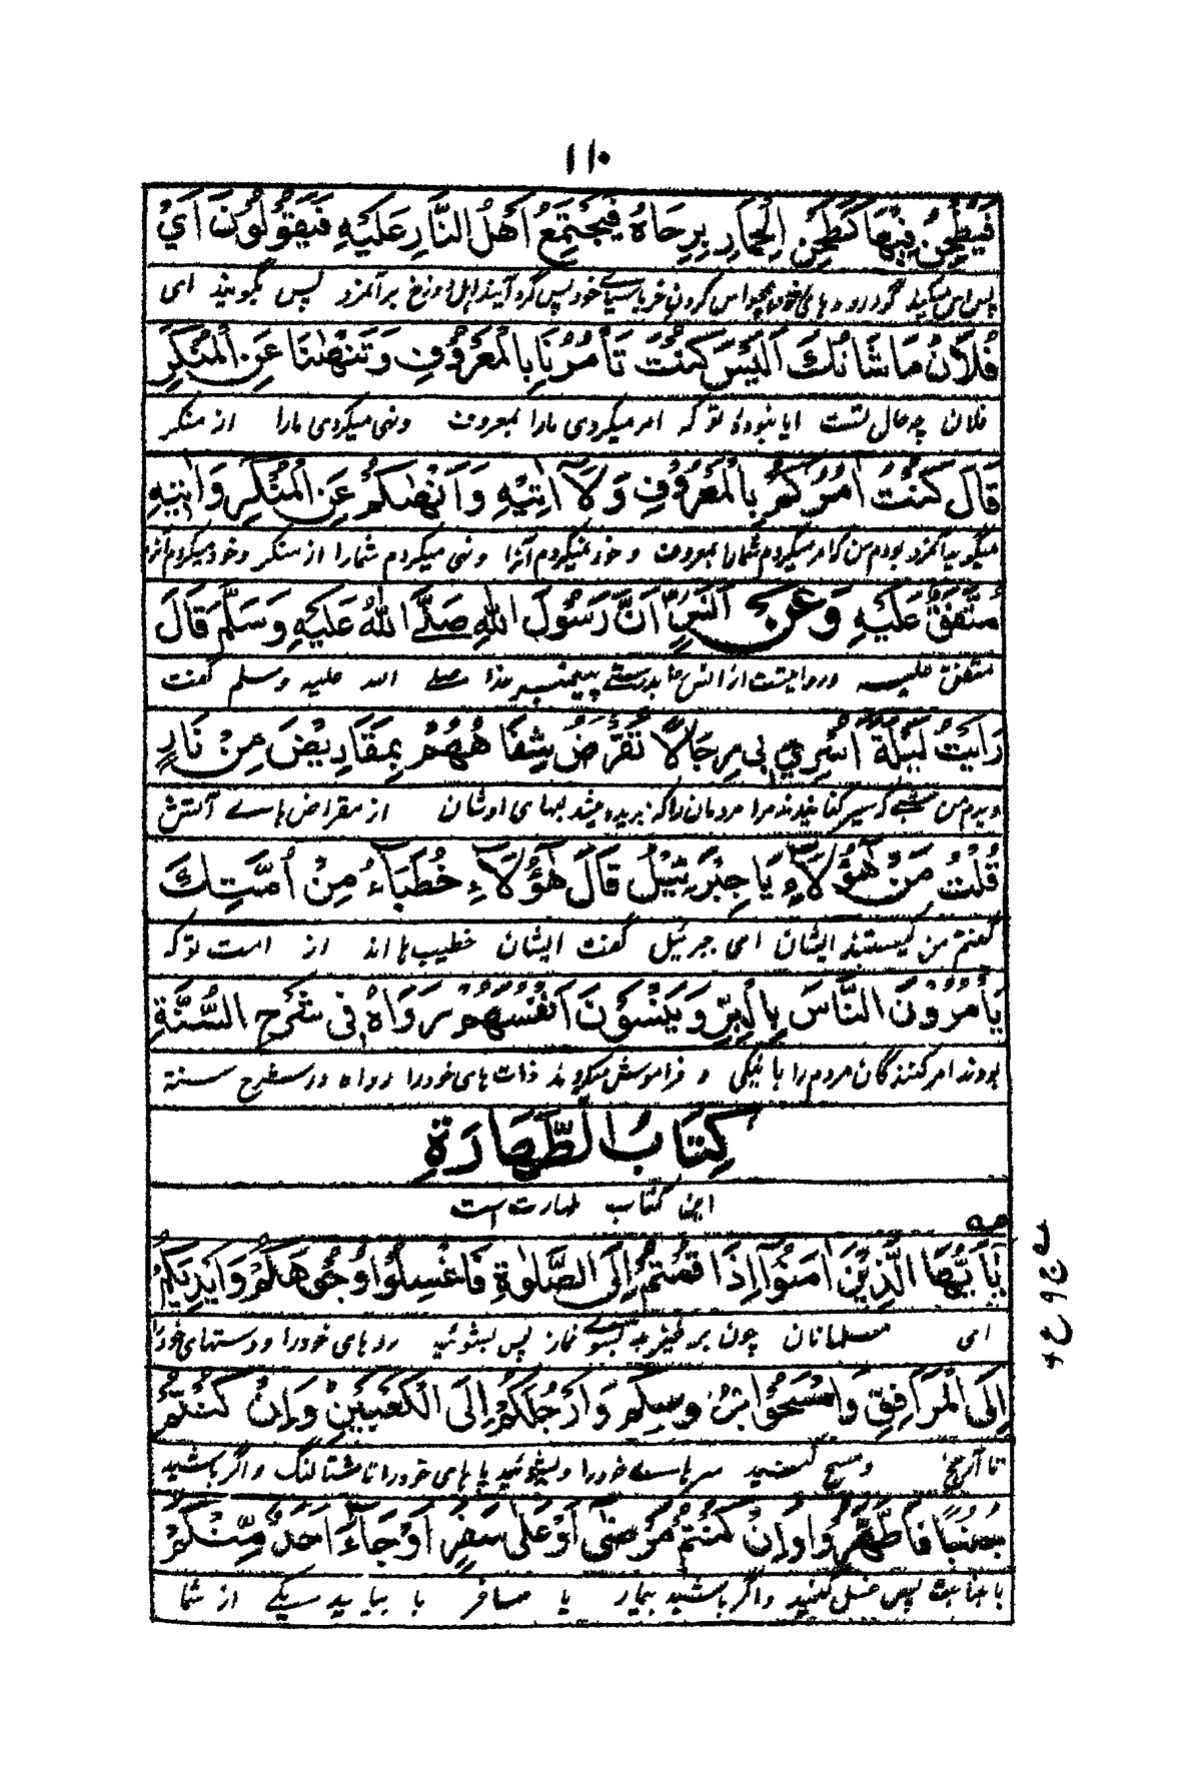 ١١٠
فَيَطْحَنُ فِيْهَا كَطَحْنِ الْحِمَارِ بِرِحَاهُ فَيَجْتَمِعُ اَهْلُ النَّارِ عَلَيْهِ فَيَقُوْلُوْنَ اَيْ
پس آس میکند گرد روده های خود همچو آس کردن خر با سیاے خود پس گرد آیند اهل دوزخ بر آنمرد پس بگویند ای
فُلَانُ مَا شَانُكَ اَلَيْسَ كُنْتَ تَأْمُرُنَا بِالْمَعْرُوْفِ وَتَنْهٰىنَا عَنِ الْمُنْكَرِ
فلان چه حال تست ایا نبودی تو که امر میکردی مارا بمعروف ونهی میکردی مارا از منکر
قَالَ كُنْتُ اٰمُرُكُمْ بِالْمَعْرُوْفِ وَلَآ اٰتِيْهِ وَاَنْهٰىكُمْ عَنِ الْمُنْكَرِ وَاٰتِيْهِ
میگوید آنمرد بودم من که امر میکردم شمارا بمعروف و خود نمیکردم آنرا ونهی میکردم شمارا از منکر وخود میکردم آنرا
مُتَّفَقٌ عَلَيْهِ وَعَنْ اَنَسٍ اَنَّ رَسُوْلَ اللهِ صَلَّى اللهُ عَلَيْهِ وَسَلَّمَ قَالَ
متفق علیه وروایتست از انس بدرستے پیغمبر خدا صلے الله علیه وسلم گفت
رَاَيْتُ لَيْلَةَ اُسْرِيَ بِيْ رِجَالًا تُقْرَضُ شِفَاهُهُمْ بِمَقَارِيْضَ مِنْ نَارٍ
دیدم من شبے که سیر کنانیدند مرا مردمان راکه بریده میشد لبهای اوشان از مقراض هاے آتش
قُلْتُ مَنْ هٰٓؤُلَآءِ يَا جِبْرَئِيْلُ قَالَ هٰٓؤُلَآءِ خُطَبَآءُ مِنْ اُمَّتِكَ
گفتم من کیستند ایشان ای جبرئیل گفت ایشان خطیب ها اند از امت تو که
يَأْمُرُوْنَ النَّاسَ بِالْبِرِّ وَيَنْسَوْنَ اَنْفُسَهُمْ رَوَاهُ فِيْ شَرْحِ السُّنَّةِ
بودند امر کنندگان مردم را با نیکی و فراموش میکردند ذات های خودرا رواه در شرح سنة
كِتَابُ الطَّهَارَةِ
این کتاب طهارت است
يٰٓاَيُّهَا الَّذِيْنَ اٰمَنُوْٓا اِذَا قُمْتُمْ اِلَى الصَّلٰوةِ فَاغْسِلُوْا وُجُوْهَكُمْ وَاَيْدِيَكُمْ
ای مسلمانان چون برخیزید بسوے نماز پس بشوئید روهای خودرا ودستهای خودرا
اِلَى الْمَرَافِقِ وَامْسَحُوْا بِرُءُوْسِكُمْ وَاَرْجُلَكُمْ اِلَى الْكَعْبَيْنِ وَاِنْ كُنْتُمْ
تا آرنج ومسح کنید سرهاے خودرا وبشوئید پاهای خودرا تا شتالنگ واگر باشید
جُنُبًا فَاطَّهَّرُوْا وَاِنْ كُنْتُمْ مَّرْضٰٓى اَوْ عَلٰى سَفَرٍ اَوْ جَآءَ اَحَدٌ مِّنْكُمْ
با جنابت پس غسل کنید واگر باشید بیمار یا مسافر یا بیاید یکے از شما